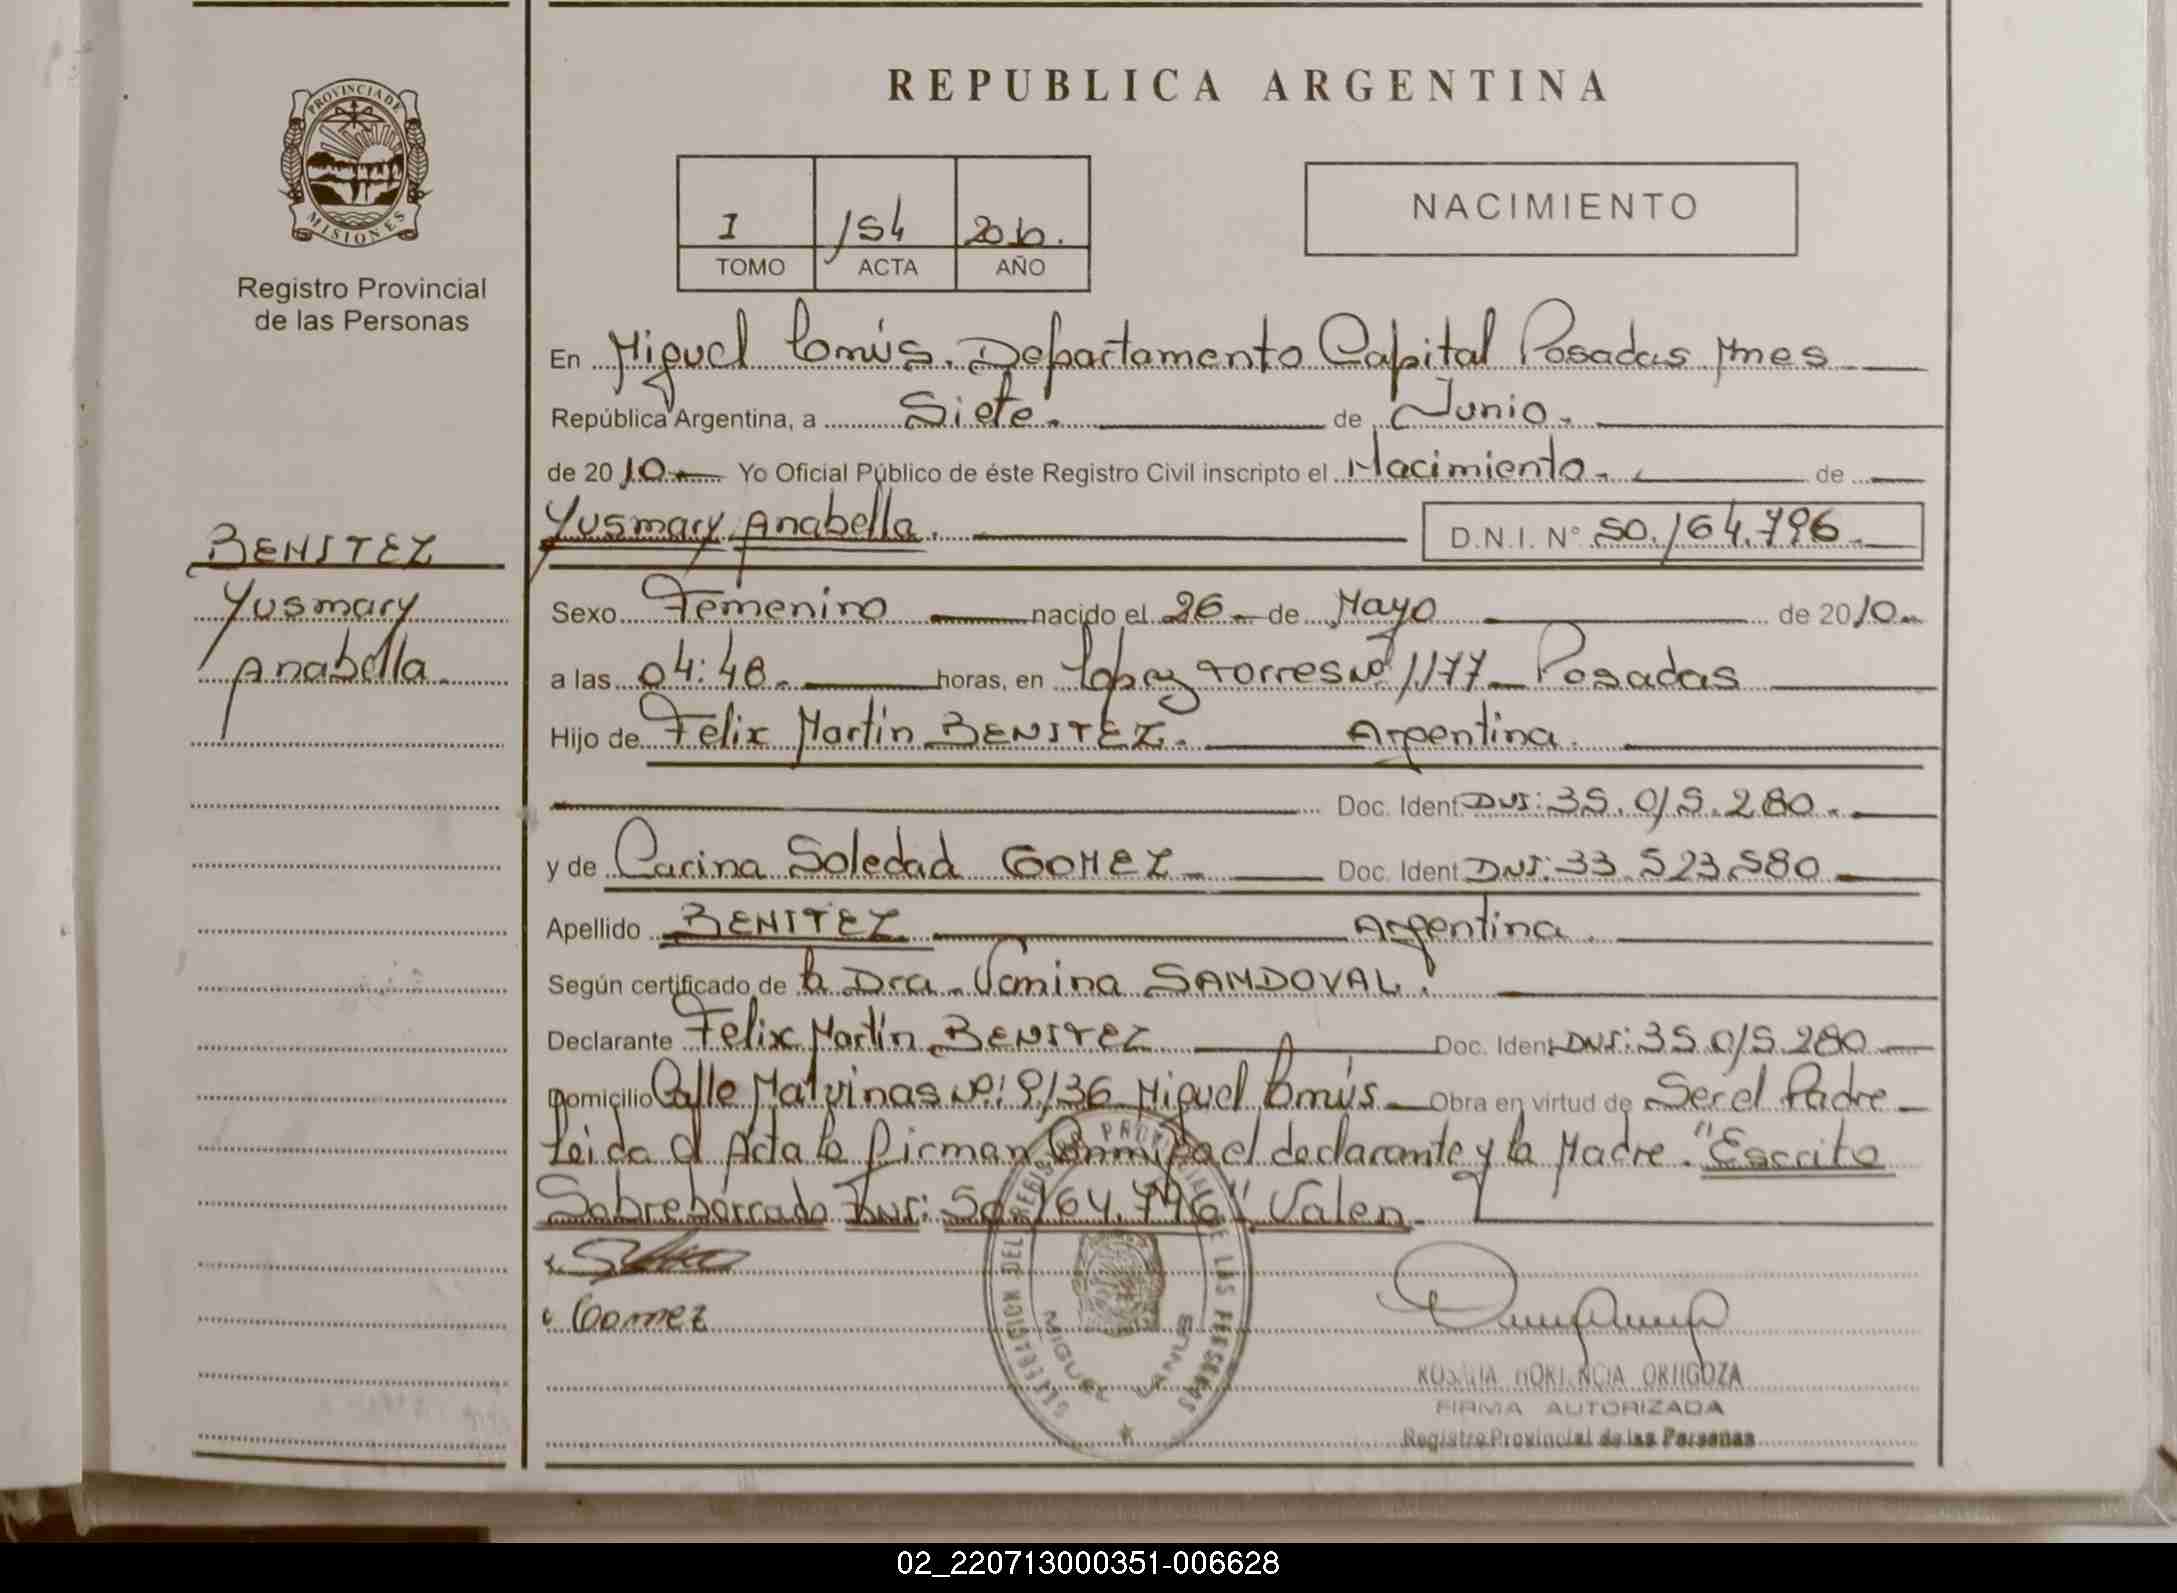 REPUBLICA ARGENTINA
PROVINCIA DE
MISIONES
Registro Provincial
de las Personas
I 154 2010.
TOMO ACTA AÑO
NACIMIENTO
En Miguel Lanús. Departamento Capital Posadas Mnes
República Argentina, a Siete. de Junio.
de 2010 Yo Oficial Público de éste Registro Civil inscripto el Nacimiento. de
Yusmary Anabella. D.N.I. N° 50.164.796.
BENITEZ
Yusmary
Anabella.
Sexo Femenino nacido el 26 de Mayo de 2010
a las 04:48. horas, en López Torres Nº 1177 Posadas
Hijo de Felix Martín BENITEZ. Argentina.
Doc. Ident DNI: 35.015.280.
y de Carina Soledad GOMEZ Doc. Ident DNI: 33.523.580
Apellido BENITEZ Argentina.
Según certificado de la Dra. Vanina SANDOVAL.
Declarante Felix Martín BENITEZ Doc. Ident DNI: 35.015.280
Domicilio Calle Malvinas Nº: 9136 Miguel Lanús Obra en virtud de Ser el Padre
Leida el Acta la firman Conmigo el declarante y la Madre. "Escrito
Sobreborrado DNI: 50.164.796" Valen.
Gomez
DELEGACION DEL REGISTRO PROVINCIAL DE LAS PERSONAS
MIGUEL LANUS
ORTIGOZA
FIRMA AUTORIZADA
Registro Provincial de las Personas
02_220713000351-006628